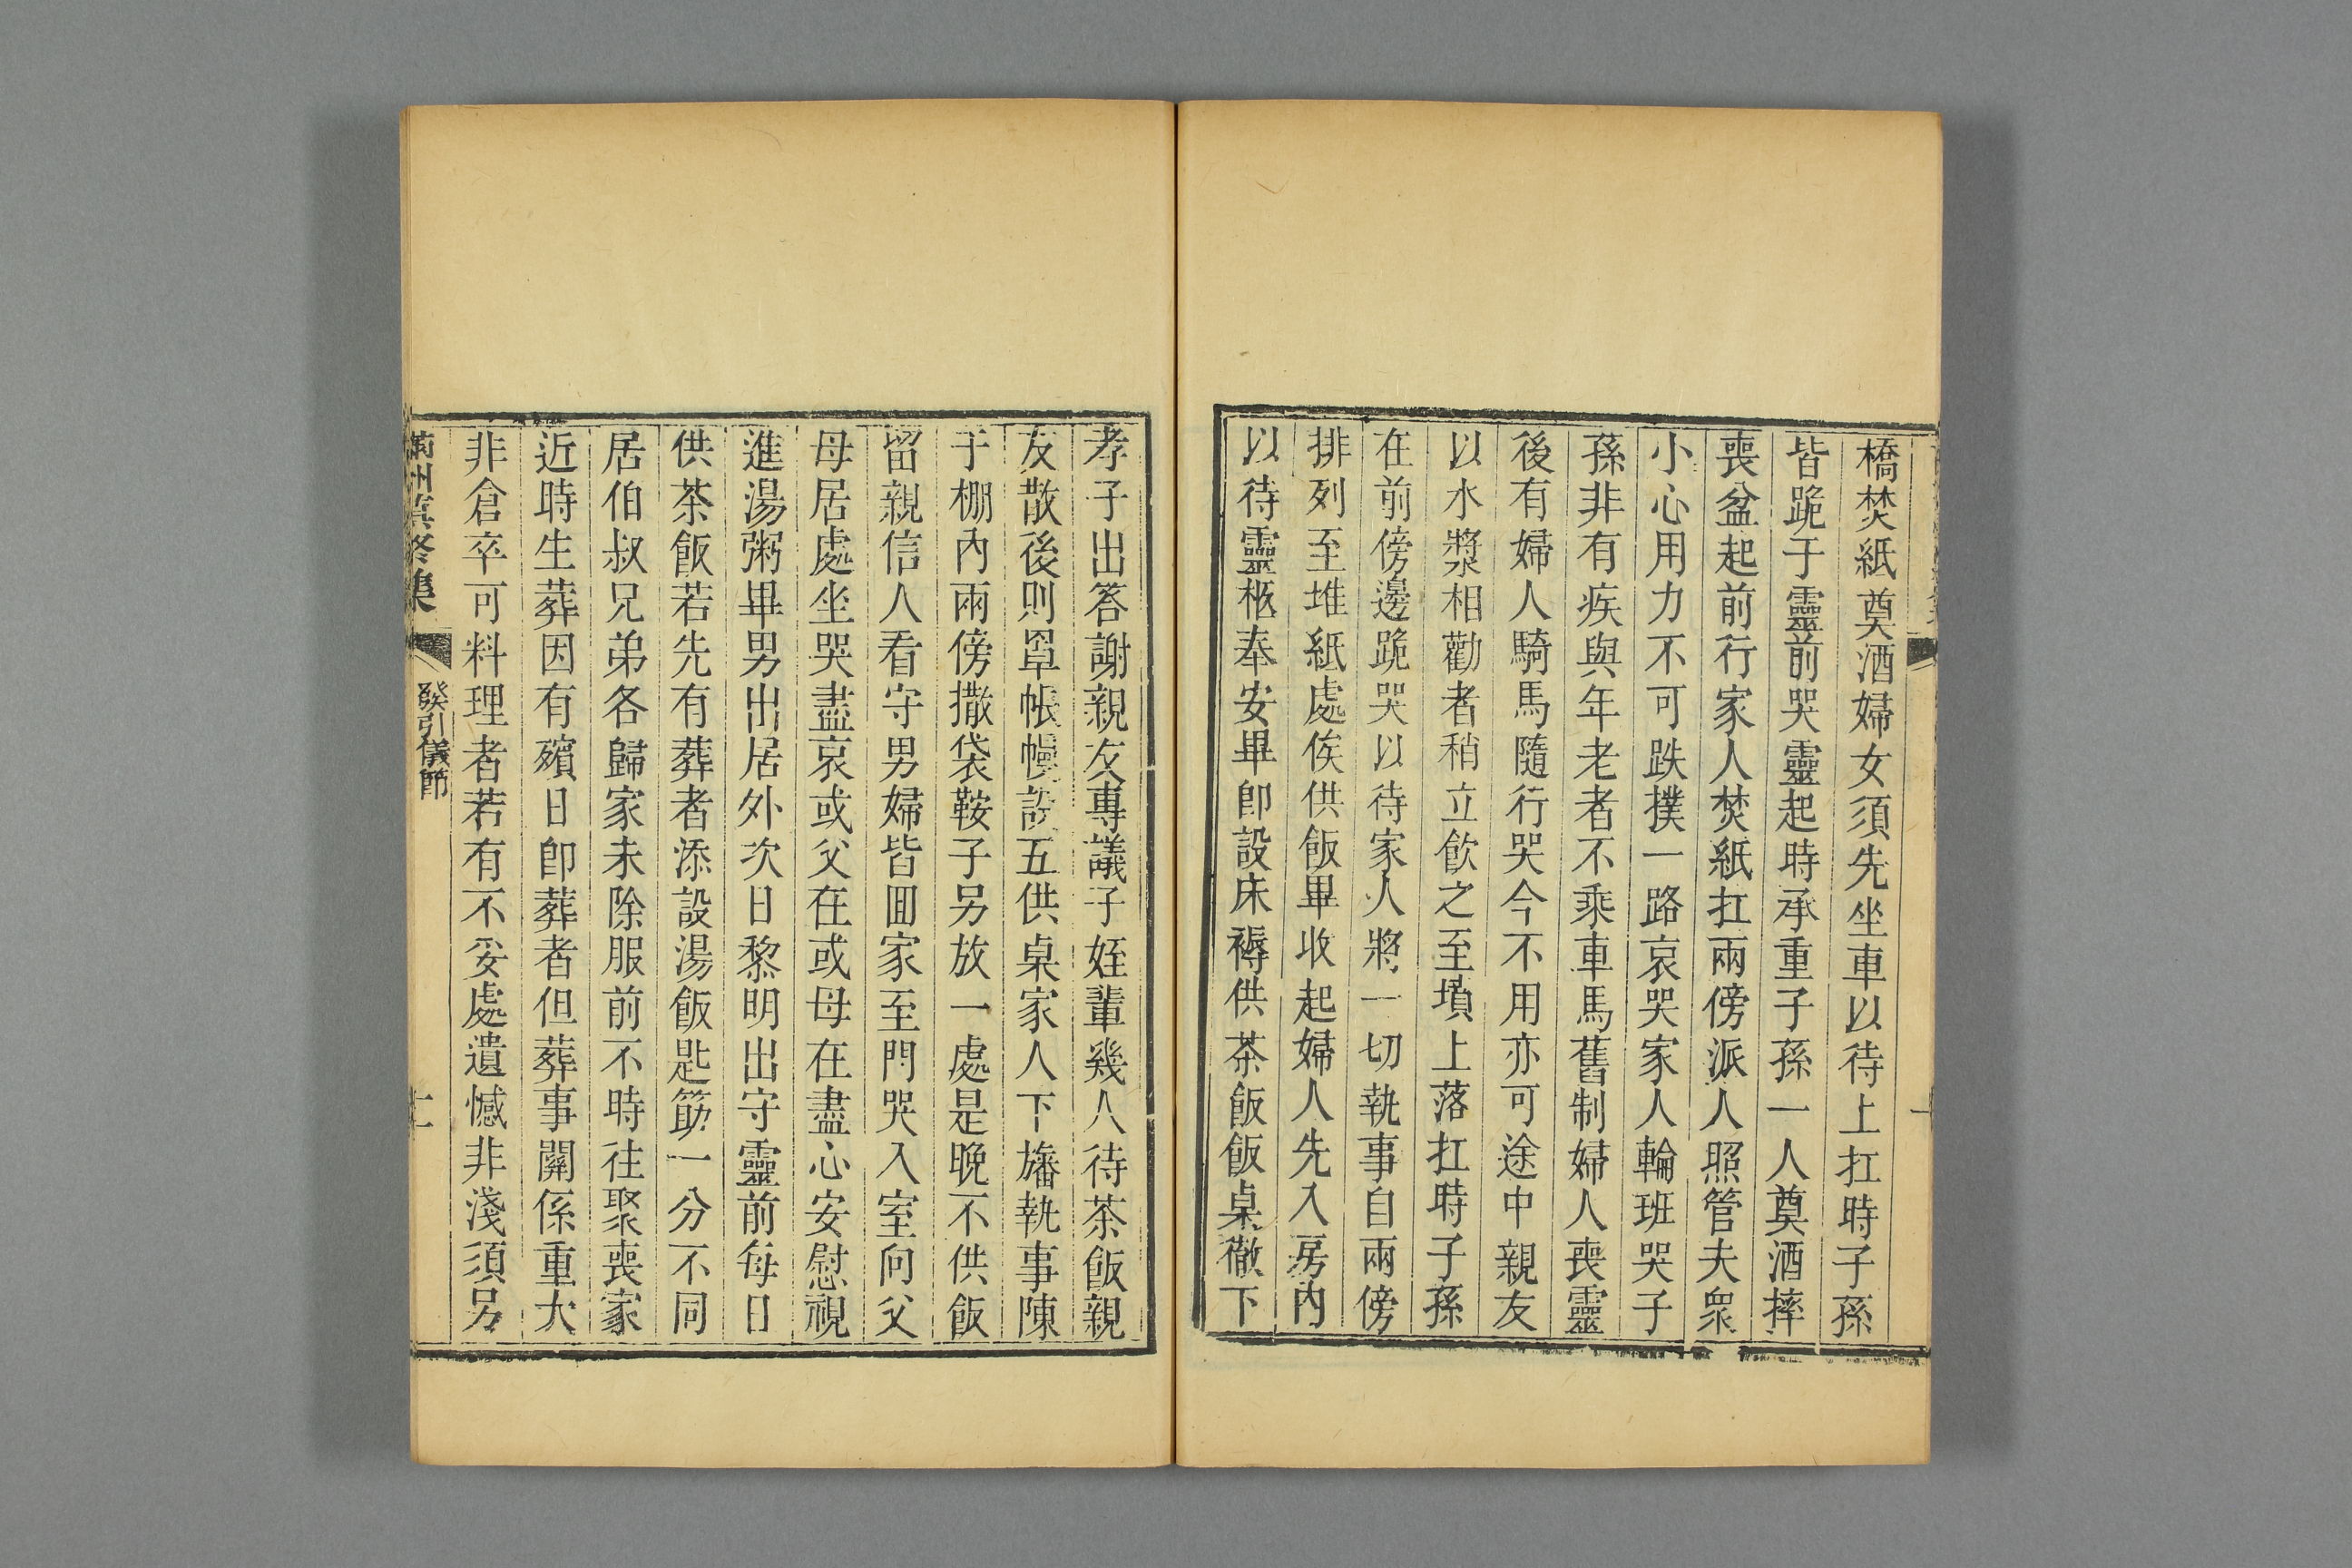 橋焚紙奠酒婦女須先坐車以待上扛時子孫
皆跪于靈前哭靈起時承重子孫一人奠酒摔
喪盆起前行家人焚紙扛兩傍派人照管夫衆
小心用力不可跌撲一路哀哭家人輪班哭子
孫非有疾與年老者不乘車馬舊制婦人喪靈
後有婦人騎馬隨行哭今不用亦可途中親友
以水漿相勸者稍立飲之至墳上落扛時子孫
在前傍邊跪哭以待家人將一切執事自兩傍
排列至堆紙處俟供飯畢收起婦人先入房內
以待靈柩奉安畢卽設床褥供茶飯飯桌徹下
孝子出答謝親友專議子姪輩幾人待茶飯親
友散後則罩帳幔設五供桌家人下旛執事陳
于棚內兩傍撒袋鞍子另放一處是晚不供飯
留親信人看守男婦皆回家至門哭入室向父
母居處坐哭盡哀或父在或母在盡心安慰視
進湯粥畢男出居外次日黎明出守靈前每日
供茶飯若先有葬者添設湯飯匙筯一分不同
居伯叔兄弟各歸家未除服前不時往聚喪家
近時生葬因有殯日卽葬者但葬事關係重大
非倉卒可料理者若有不妥處遺憾非淺須另
滿洲慎終集
發引儀節
十一